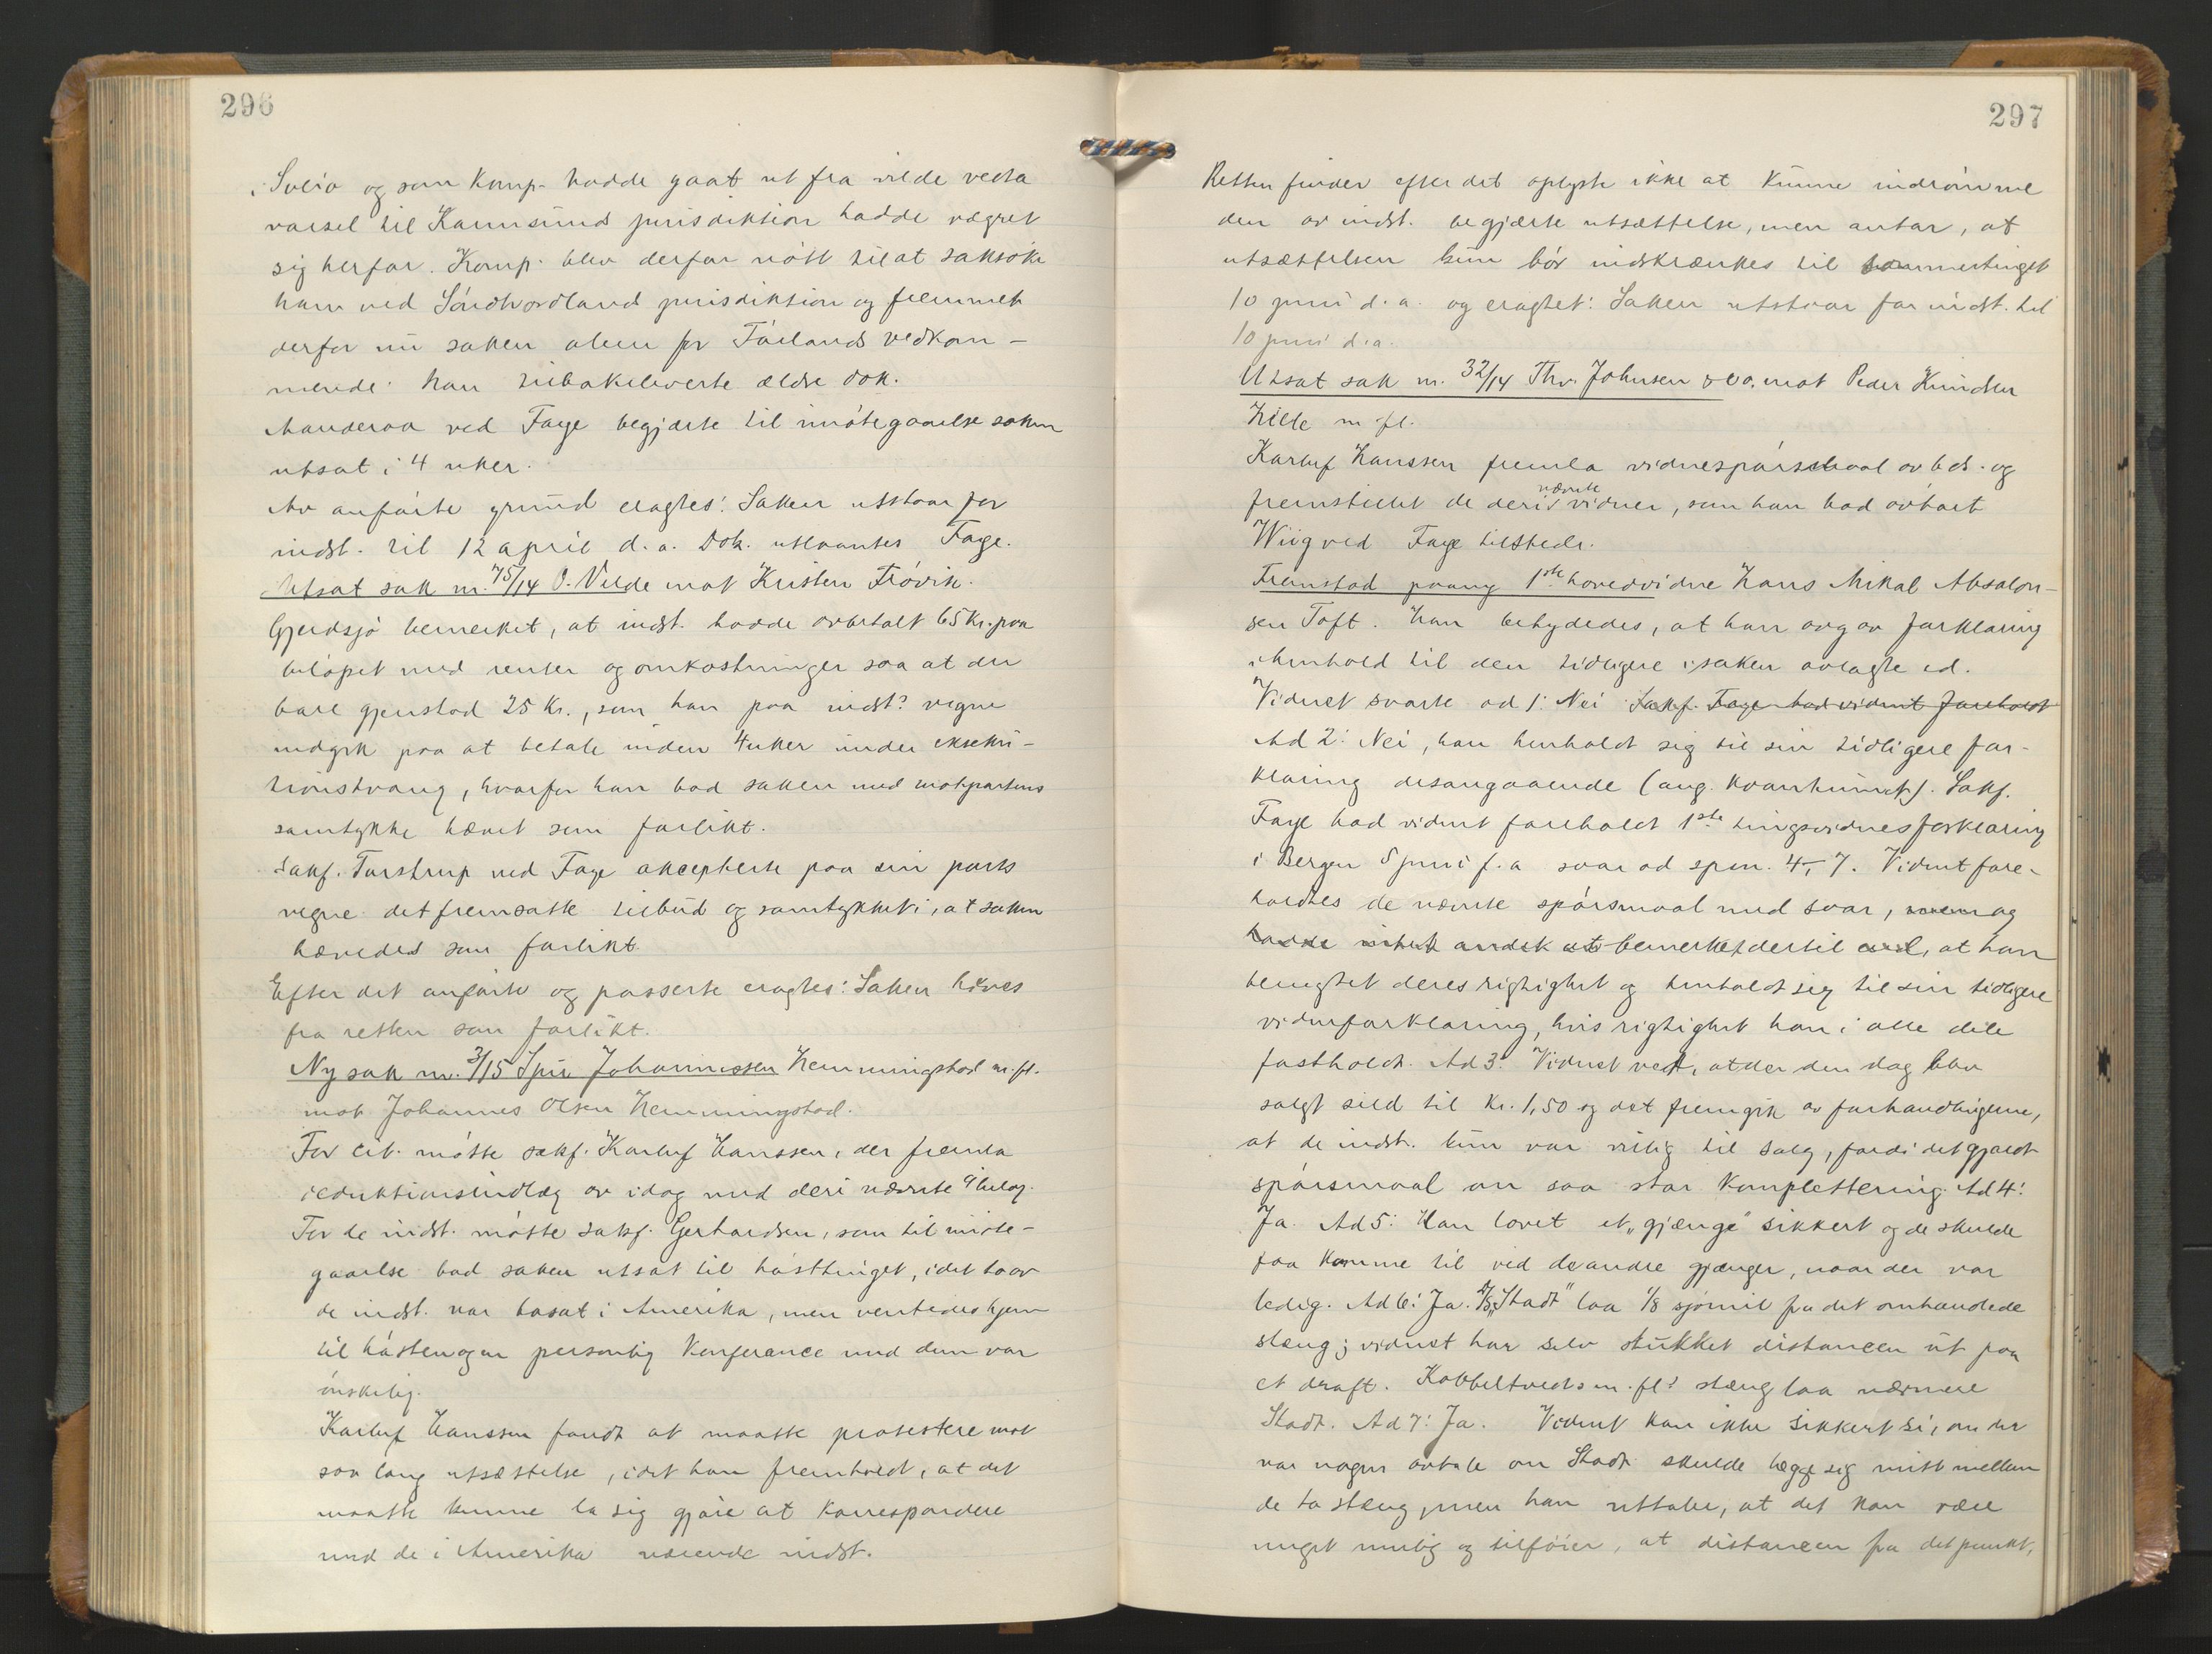 296
i Sveio og som komp. hadde gaat ut fra vilde vedta
varsel til Karmsunds jurisdiktion hadde vægret
sig herfor. Komp. blev derfor nött til at saksöke
ham ved Söndhordland jurisdiktion og fremmet
derfor nu saken alene for Fölands vedkom-
mende. Han tilbakeleverte ældre dok.
Manderaa ved Faye begjærte til imötegaaelse saken
utsat i 4 uker.
Av anförte grund eragtes: Saken utstaar for
indst. til 12 april d.a. Dok. utlaantes Faye.
Utsat sak nr. 75/14 O. Velde mot Kristen Trövik.
Gjerdsjö bemerket, at indst. hadde avbetalt 65 Kr. paa
belöpet med renter og omkostninger saa at der
bare gjenstod 25 Kr., som han paa indst.s vegne
indgik paa at betale inden 4 uker under eksekù-
tionstvang, hvorfor han bad saken med motpartens
samtykke hævet som forlikt.
Sakf. Turstrup ved Faye akcepterte paa sin parts
vegne det fremsatte tilbud og samtykket i, at saken
hævedes som forlikt.
Efter det anförte og passerte eragtes: Saken hæves
fra retten som forlikt.
Ny sak nr. 3/15 Johannessen Hemmingstad m.fl.
mot Johannes Olsen Hemmingstad.
For cit. mötte sakf. Karluf Hanssen, der fremla
deduktionsindlæg av idag med deri nævnte 9 bilag.
For de indst. mötte sakf. Gerhardsen, som til imöte-
gaaelse bad saken utsat til hösttinget, idet to av
de indst. var bosat i Amerika, men ventedes hjem
til hösten og en personlig konferance med dem var
önskelig.
Karluf Hanssen fandt at maatte protestere mot
saa lang utsættelse, idet han fremholdt, at det
maatte kunne la sig gjöre at korrespondere
med de i Amerika værende indst.
297
Retten finder efter det oplyste ikke at kunne indrömme
den av indst. begjærte utsættelse, men antar, at
utsættelsen kun bör indskrænkes til sommertinget
10 juni d.a. og eragtet: Saken utstaar for indst. til
10 juni d.a.
Utsat sak nr. 32/14 Thv. Johnsen & Co. mot Peder Knudsen
Hille m.fl.
Karluf Hanssen fremla vidnespörsmaal av ds. og
fremstillet de deri nævnte vidner, som han bad avhört
Wiig ved Faye tilstede.
Fremstod paany 1ste hovedvidne Hans Mikal Absalon-
sen Toft. Han betydedes, at han avgav forklaring
i henhold til den tidligere i saken avlagte ed.
Vidnet svarte ad 1: Nei Sakf. Faye bad vidnet foreholdt
Ad 2: Nei, han henholdt sig til sin tidligere for-
klaring desangaaende (ang. kvantumet). Sakf.
Faye bad vidnet foreholdt 1ste tingsvidnes forklaring
i Bergen 5 juni f.a svar ad spm. 4-7. Vidnet fore-
holdtes de nævnte spörsmaal med svar, men og
hadde intet andet at bemerket dertil end, at han
benegtet deres rigtighet og henholdt sig til sin tidligere
vidneforklaring, hvis rigtighet han i alle dele
fastholdt. Ad 3: Vidnet vet, at der den dag blev
solgt sild til Kr. 1,50 og det fremgik av forhandlingerne,
at de indst. kun var villig til salg, fordi det gjaldt
spörsmaal om saa stor komplettering. Ad 4:
Ja. Ad 5: Han lovet et "gjænge" sikkert og de skulde
faa komme til ved de andre gjænger, naar der var
ledig. Ad 6: Ja. D/S "Stadt" laa 1/8 sjömil fra det omhandlede
stæng; vidnet har selv stukket distancen ut paa
et draft. Kobbeltvedts m.fl.s stæng laa nærmere
Stadt. Ad 7: Ja. Vidnet kan ikke sikkert si, om der
var nogen avtale om Stadt skulde lægge sig mitt mellem
de to stæng, men han uttaler, at det kan være
meget mulig og tilföier, at distancen fra det punkt,